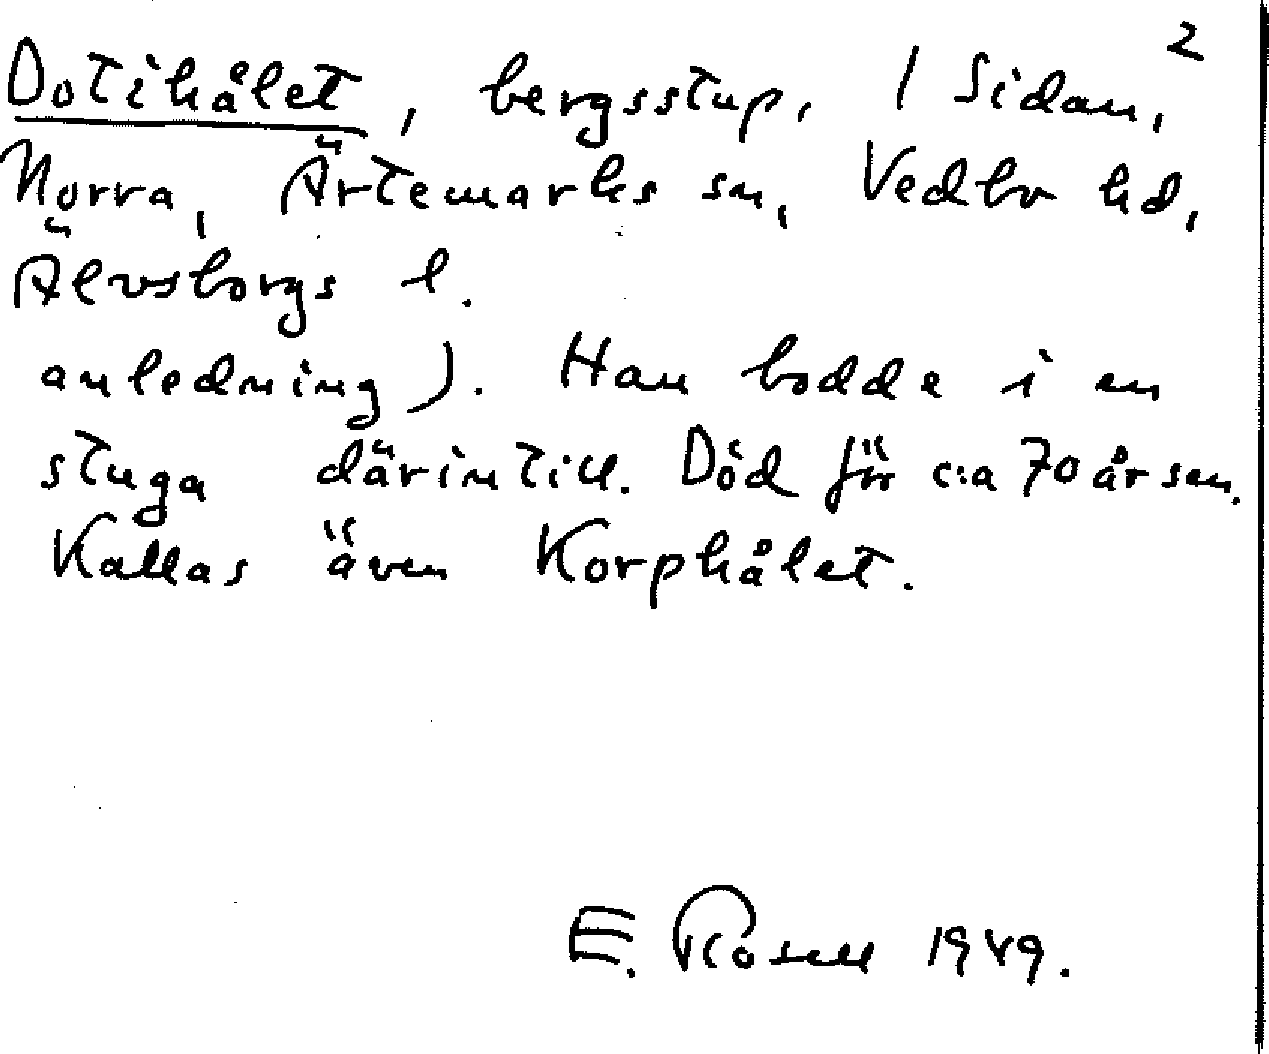 2
Dotihålet, bergsstup, / Sidan,
Norra, Ärtemarks sn, Vedbo hd,
Älvsborgs l.
anledning). Han bodde i en
stuga därintill. Död för c:a 70 år sen.
Kallas även Korphålet.
E. Rosell 1949.